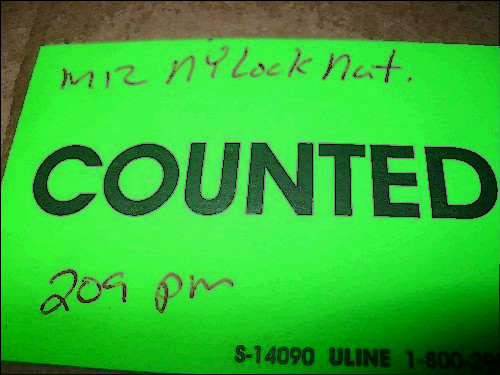 M12 NYLock Nut.
COUNTED
209 pm
S-14090 ULINE 1-800-29